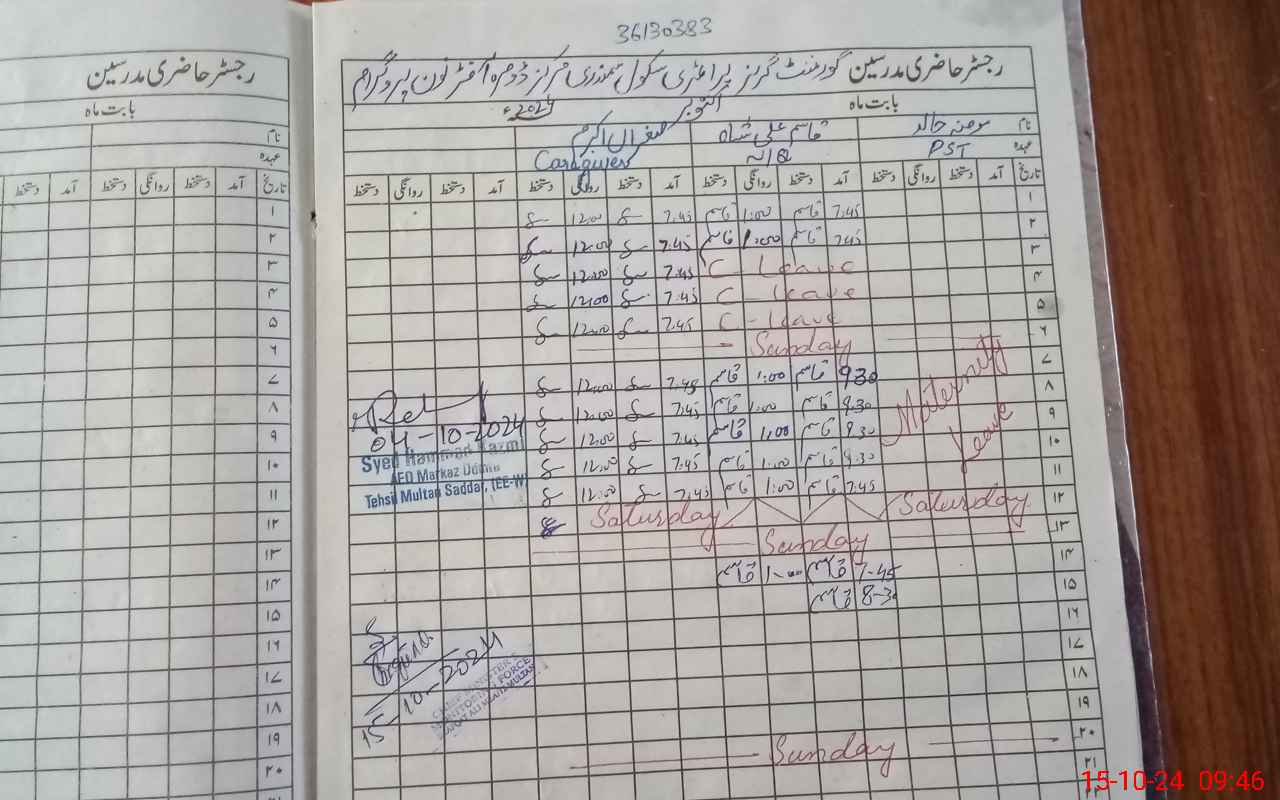 36130383
رجسٹر حاضری مدرسین
رجسٹر حاضری مدرسین گورنمنٹ گرلز پرائمری سکول سمندری مرکز ڈومرہ آفٹر نون پروگرام
بابت ماہ
بابت ماہ اکتوبر 2024ء
نام
نام مومنہ خالد قاسم علی شاہ صغراں اکرم
عہدہ
عہدہ PST Caregivers
تاریخ دستخط روانگی دستخط آمد دستخط آمد
تاریخ آمد دستخط روانگی دستخط آمد دستخط روانگی دستخط آمد دستخط روانگی دستخط آمد دستخط روانگی دستخط
۱ 7:45 قاسم 1:00 قاسم 7:45 12:00
۲ 7:45 قاسم 1:00 قاسم 7:45 12:00
۳ C - Leave 7:45 12:00
۴ C - Leave 7:45 12:00
۵ C - Leave 7:45 12:00
۶ Sunday
۷ 9:30 قاسم 1:00 قاسم 7:45 12:00
۸ 9:30 قاسم 1:00 قاسم 7:45 12:00
۹ 9:30 قاسم 1:00 قاسم 7:45 12:00
۱۰ 9:30 قاسم 1:00 قاسم 7:45 12:00
۱۱ 7:45 قاسم 1:00 قاسم 7:45 12:00
Maternity
Leave
04-10-2024
Syed Hammad Kazmi
AEO Markaz
Tehsil Multan Saddar, (EE-W)
۱۲ Saturday Saturday
۱۳ Sunday
۱۴ 7-45 قاسم 1-00 قاسم
۱۵ 8-30 قاسم
۱۶
۱۷
15-10-2024
CHIEF MINISTER'S
MONITORING FORCE
۱۸
۱۹
۲۰ Sunday
۲۱
۲۲
۱
۲
۳
۴
۵
۶
۷
۸
۹
۱۰
۱۱
۱۲
۱۳
۱۴
۱۵
۱۶
۱۷
۱۸
۱۹
۲۰
15-10-24 09:46